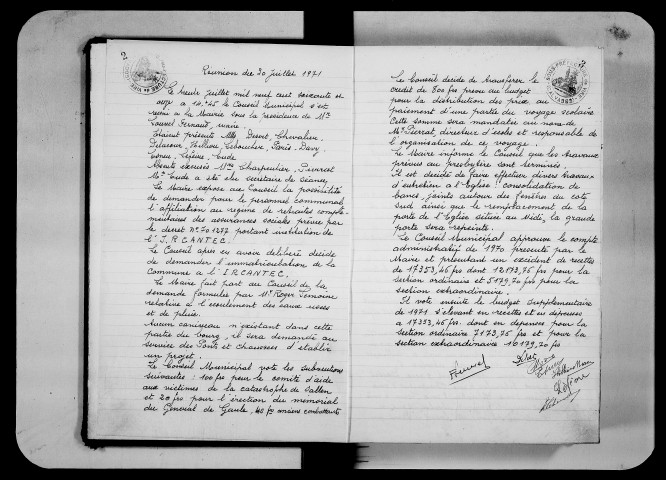 2
Réunion du 30 Juillet 1971
Le trente Juillet mil neuf cent soixante et
onze à 14h45 le Conseil Municipal s'est
réuni à la Mairie sous la présidence de Mr
Louvel Fernand, maire
Etaient présents MM Desert, Chevalier,
Delacour, Leboucher, Paris, Davy,
Lefevre, Eude
Absents excusés Mmes Charpentier,
Mr Eude a été élu secrétaire de Séance,
Le Maire expose au Conseil la possibilité
de demander pour le personnel communal
l'affiliation au régime de retraites complé-
mentaires des assurances sociales prévue par
le décret N° 70 1277 portant institution de
l'I.R.CANTEC.
Le Conseil après en avoir délibéré décide
de demander l'immatriculation de la
Commune à l'IRCANTEC.
Le Maire fait part au Conseil de la
demande formulée par Mr Roger Lemoine
relative à l'écoulement des eaux usées
et de pluie.
Aucun caniveau n'existant dans cette
partie du bourg, il sera demandé au
service des Ponts et Chaussées d'établir
un projet.
Le Conseil Municipal vote les subventions
suivantes : 100 frs pour le comité d'aide
aux victimes de la catastrophe de
et 20 frs pour l'érection du mémorial
du Général de Gaulle, 40 frs anciens combattants
3
Le Conseil décide de transférer le
crédit de 800 frs prévu au budget
pour la distribution des prix au
paiement d'une partie du voyage scolaire
Cette somme sera mandatée au nom de
Mr Pierrat, directeur d'école et responsable de
l'organisation de ce voyage.
Le Maire informe le Conseil que les travaux
prévus au presbytère sont terminés
Il est décidé de faire effectuer divers travaux
d'entretien à l'Eglise : consolidation de
bancs, joints autour des fenêtres du côté
sud ainsi que le remplacement de la
porte de l'Eglise située au Midi, la grande
porte sera repeinte.
Le Conseil Municipal approuve le compte
administratif de 1970 présenté par le
Maire et présentant un excédent de recettes
de 17353,45 frs dont 12173,75 frs pour la
section ordinaire et 5179,70 frs pour la
section extraordinaire.
Il vote ensuite le budget supplémentaire
de 1971 s'élevant en recettes et en dépenses
à 17353,45 frs. dont en dépenses pour la
section ordinaire 7173,75 frs et pour la
section extraordinaire 10179,70 frs